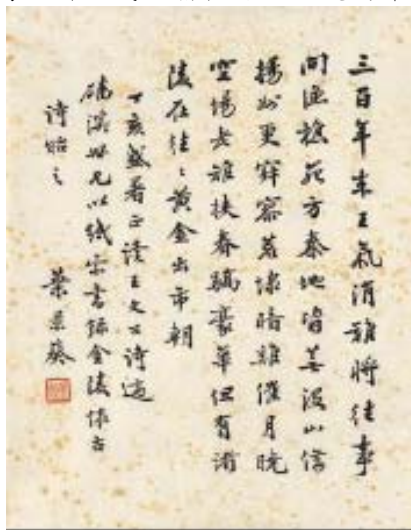 三百年來王氣消難將往事
問漁樵苑方秦地皆蕪沒山借
揚州更寂寥荒埭暗雞催月曉
空場老雉挾春驕豪華但有諸
陵在往々黃金出市朝
丁亥盛暑正讀王文公詩適
世兄以紙索書錄金陵懷古
詩貽之 葉景葵